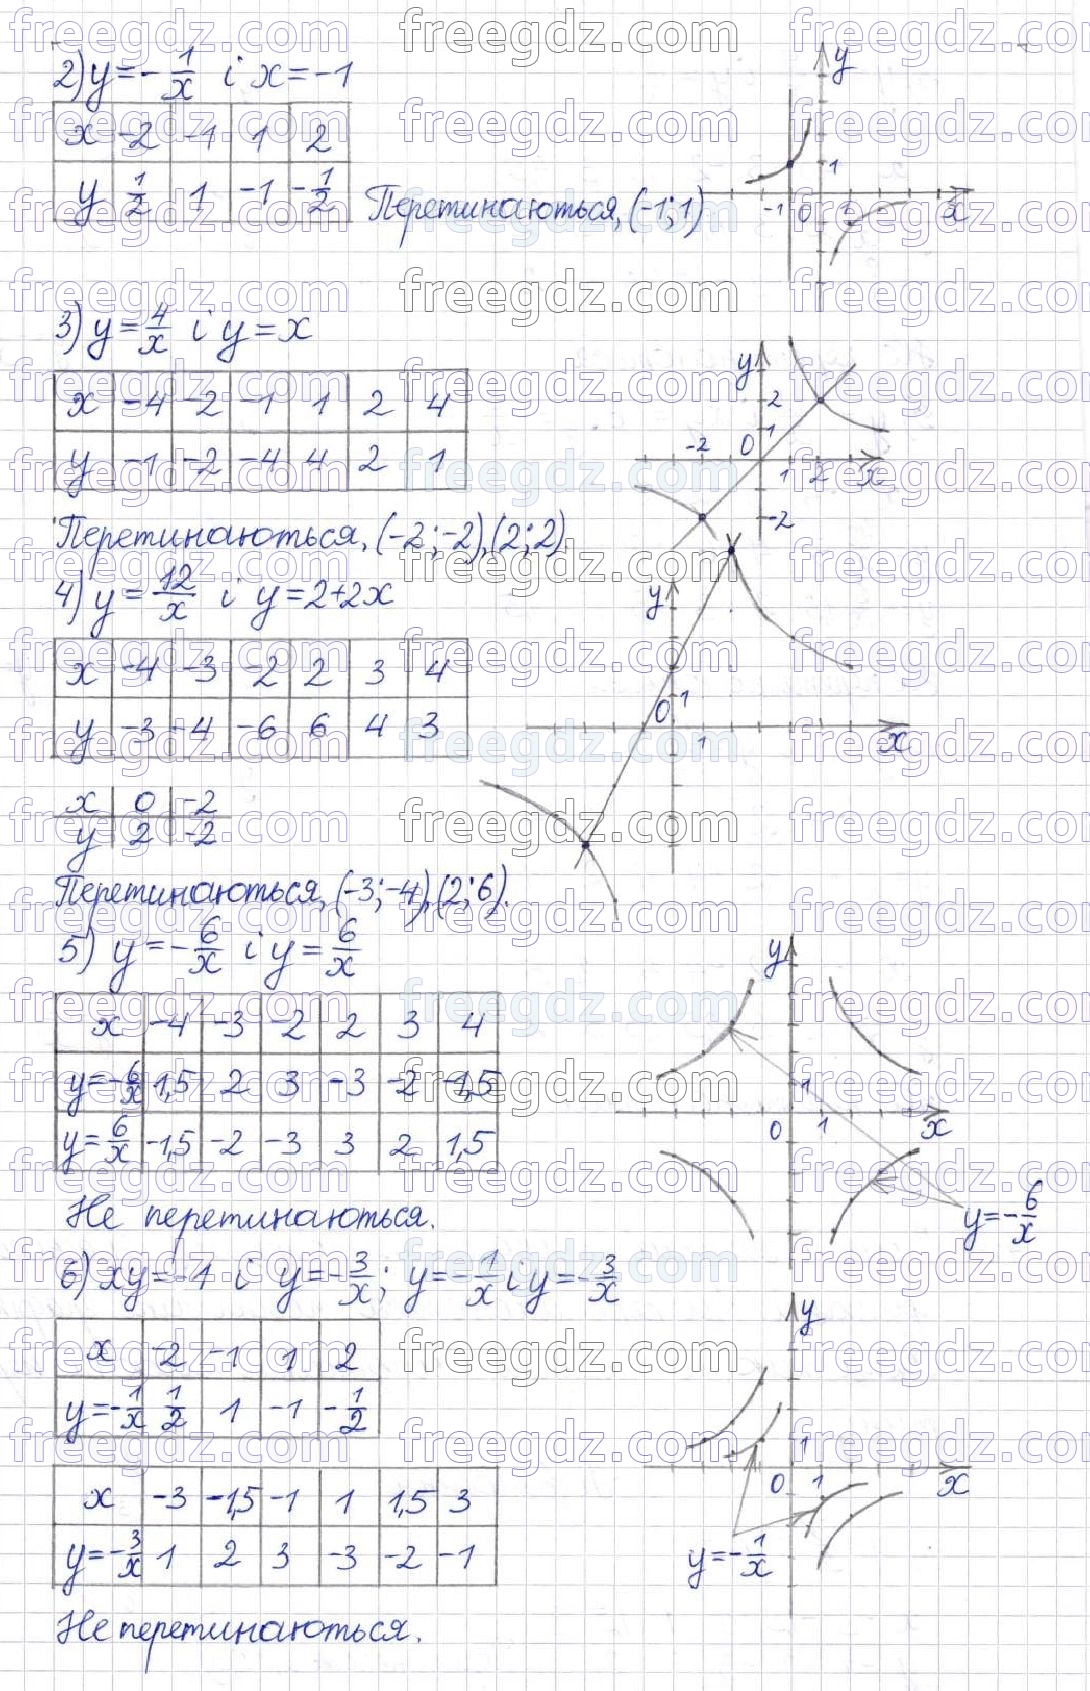 2) y = -1/x і x = -1
x -2 -1 1 2
y 1/2 1 -1 -1/2
Перетинаються, (-1; 1)
y
1
-1 0 1 x
3) y = 4/x і y = x
x -4 -2 -1 1 2 4
y -1 -2 -4 4 2 1
Перетинаються, (-2; -2), (2; 2).
y
2
1
-2 0 1 2 x
-2
4) y = 12/x і y = 2+2x
x -4 -3 -2 2 3 4
y -3 -4 -6 6 4 3
x 0 -2
y 2 -2
y
1
0 1 x
Перетинаються, (-3; -4), (2; 6).
5) y = -6/x і y = 6/x
x -4 -3 -2 2 3 4
y=-6/x 1,5 2 3 -3 -2 -1,5
y=6/x -1,5 -2 -3 3 2 1,5
y
1
0 1 x
y=-6/x
Не перетинаються.
6) xy = -1 і y = -3/x; y = -1/x і y = -3/x
x -2 -1 1 2
y=-1/x 1/2 1 -1 -1/2
x -3 -1,5 -1 1 1,5 3
y=-3/x 1 2 3 -3 -2 -1
y
1
0 1 x
y=-1/x
Не перетинаються.
freegdz.com